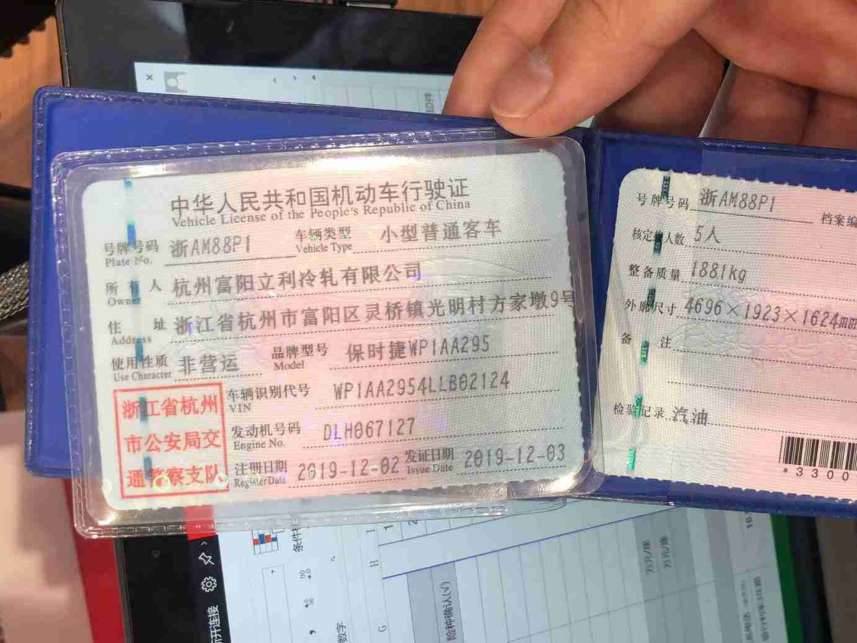 中华人民共和国机动车行驶证
Vehicle License of the People's Republic of China
号牌号码 浙AM88P1 车辆类型 小型普通客车
Plate No. Vehicle Type
所有人 杭州富阳立利冷轧有限公司
Owner
住址 浙江省杭州市富阳区灵桥镇光明村方家墩9号
Address
使用性质 非营运 品牌型号 保时捷WP1AA295
Use Character Model
浙江省杭州
市公安局交
通警察支队
车辆识别代号 WP1AA2954LLB02124
VIN
发动机号码 DLH067127
Engine No.
注册日期 2019-12-02 发证日期 2019-12-03
Register Date Issue Date
号牌号码 浙AM88P1 档案编
核定人数 5人
整备质量 1881kg
外廓尺寸 4696×1923×1624mm
备注
检验记录 汽油
*3300
条件
数字
开连接
险种确认(√)
G
H